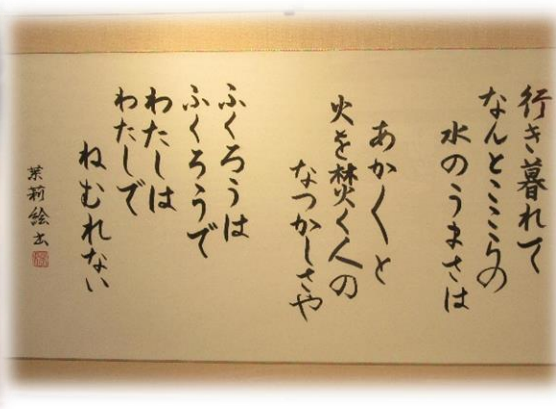 行き暮れて
なんとここらの
水のうまさは
あかあかと
火を焚く人の
なつかしさや
ふくろうは
ふくろうで
わたしは
わたしで
ねむれない
茉莉絵書